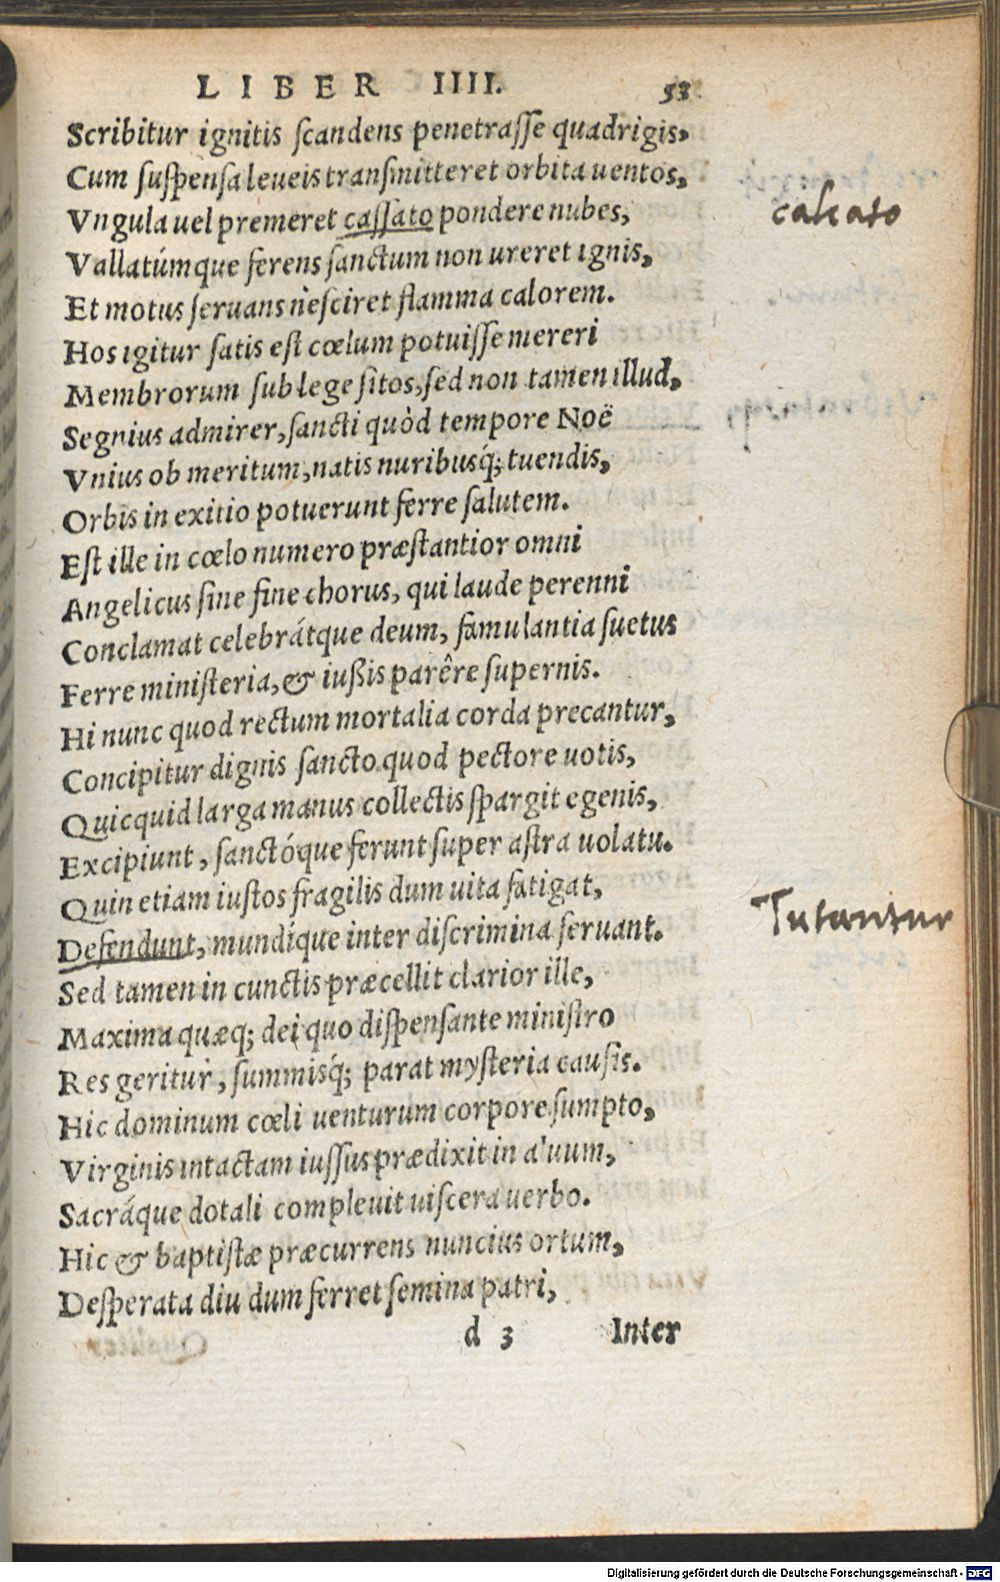 LIBER IIII. 53
Scribitur ignitis scandens penetrasse quadrigis,
Cum suspensa leueis transmitteret orbita uentos,
Vngula uel premeret cassato pondere nubes, calcato
Vallatúmque ferens sanctum non ureret ignis,
Et motus seruans nesciret flamma calorem.
Hos igitur satis est cœlum potuisse mereri
Membrorum sub lege sitos, sed non tamen illud,
Segnius admirer, sancti quòd tempore Noë
Vnius ob meritum, natis nuribusq́; tuendis,
Orbis in exitio potuerunt ferre salutem.
Est ille in cœlo numero præstantior omni
Angelicus sine fine chorus, qui laude perenni
Conclamat celebrátque deum, famulantia suetus
Ferre ministeria, & iußis parêre supernis.
Hi nunc quod rectum mortalia corda precantur,
Concipitur dignis sancto quod pectore uotis,
Quicquid larga manus collectis spargit egenis,
Excipiunt, sanctóque ferunt super astra uolatu.
Quin etiam iustos fragilis dum uita fatigat,
Defendunt, mundíque inter discrimina seruant. Tutantur
Sed tamen in cunctis præcellit clarior ille,
Maxima quæq; dei quo dispensante ministro
Res geritur, summisq́; parat mysteria causis.
Hic dominum cœli uenturum corpore sumpto,
Virginis intactam iussus prædixit in aluum,
Sacráque dotali compleuit uiscera uerbo.
Hic & baptistæ præcurrens nuncius ortum,
Desperata diu dum ferret semina patri,
d 3 Inter
Digitalisierung gefördert durch die Deutsche Forschungsgemeinschaft - DFG